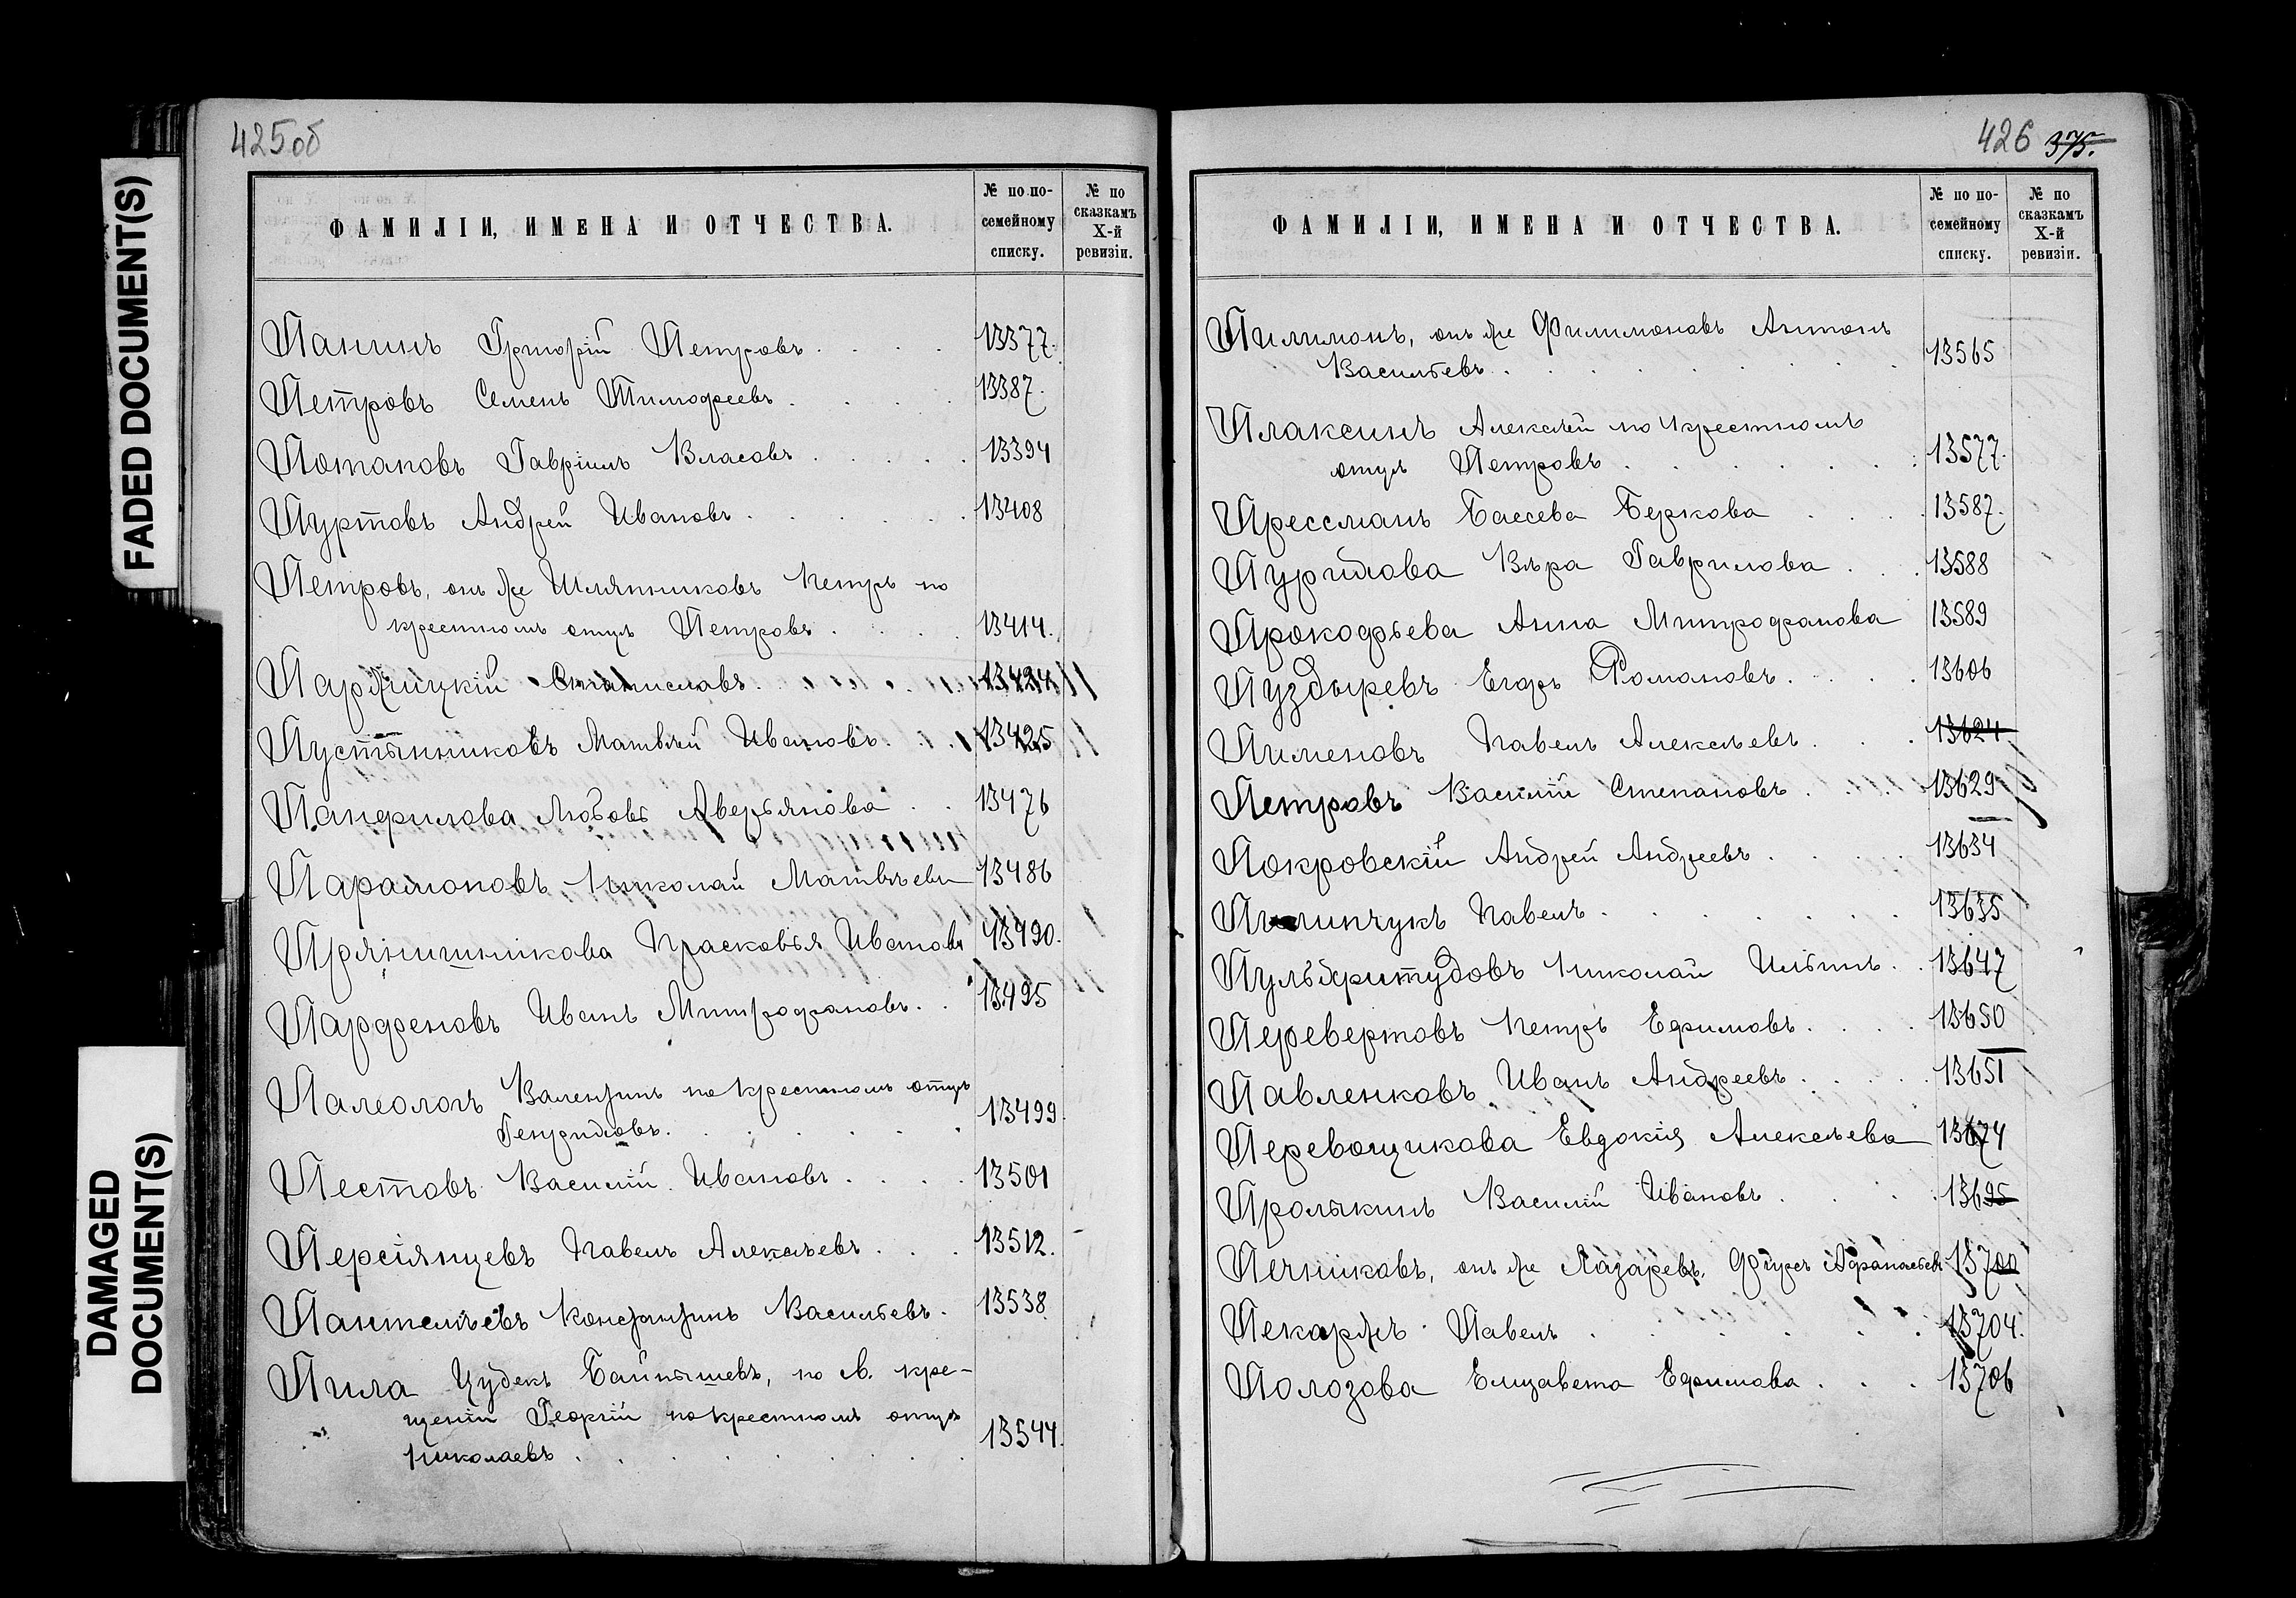 FADED DOCUMENT(S)
DAMAGED
DOCUMENT(S)
425об
ФАМИЛІИ, ИМЕНА И ОТЧЕСТВА.
№ по по-
семейному
списку.
№ по
сказкамъ
X-й
ревизіи.
Панинъ Григорій Петровъ 13377.
Петровъ Семенъ Тимофеевъ 13387.
Потаповъ Гавріилъ Власовъ 13394
Пуртовъ Андрей Ивановъ 13408
Петровъ, онъ же Шляпниковъ Петръ по
крестномъ отцѣ Петровъ 13414.
Паржицкій Станиславъ 13424
Пустынниковъ Матвѣй Ивановъ 13425
Панфилова Любовь Аверьянова 13476
Парамоновъ Николай Матвѣевъ 13486
Прянишникова Прасковья Иванова 13490.
Парфеновъ Иванъ Митрофановъ 13495
Палеологъ Валентинъ по крестномъ отцѣ
13499.
Пестовъ Василій Ивановъ 13501
Персіянцевъ Павелъ Алексѣевъ 13512.
Пантелѣевъ Константинъ Васильевъ 13538
Пила по св. кре-
щеніи Георгій по крестномъ отцѣ
Николаевъ 13544.
426 375.
ФАМИЛІИ, ИМЕНА И ОТЧЕСТВА.
№ по по-
семейному
списку.
№ по
сказкамъ
X-й
ревизіи.
Пилимонъ, онъ же Филимоновъ Антонъ
Васильевъ 13565
Плаксинъ Алексѣй по крестномъ
отцѣ Петровъ 13577.
Прессманъ Басева Беркова 13587.
Вѣра Гаврилова 13588
Прокофьева Анна Митрофанова 13589
Пуздыревъ Егоръ Романовъ 13606
Пименовъ Павелъ Алексѣевъ 13624
Петровъ Василій Степановъ 13629
Покровскій Андрей Андреевъ 13634
Павелъ 13635
Николай Ильинъ 13647
Перевертовъ Петръ Ефимовъ 13650
Павленковъ Иванъ Андреевъ 13651
Перевощикова Евдокія Алексѣева 13674
Пролыкинъ Василій Ивановъ 13695
Печниковъ, онъ же Лазаревъ, Афанасьевъ 13700
Пекаржъ Павелъ 13704.
Полозова Елизавета Ефимова 13706